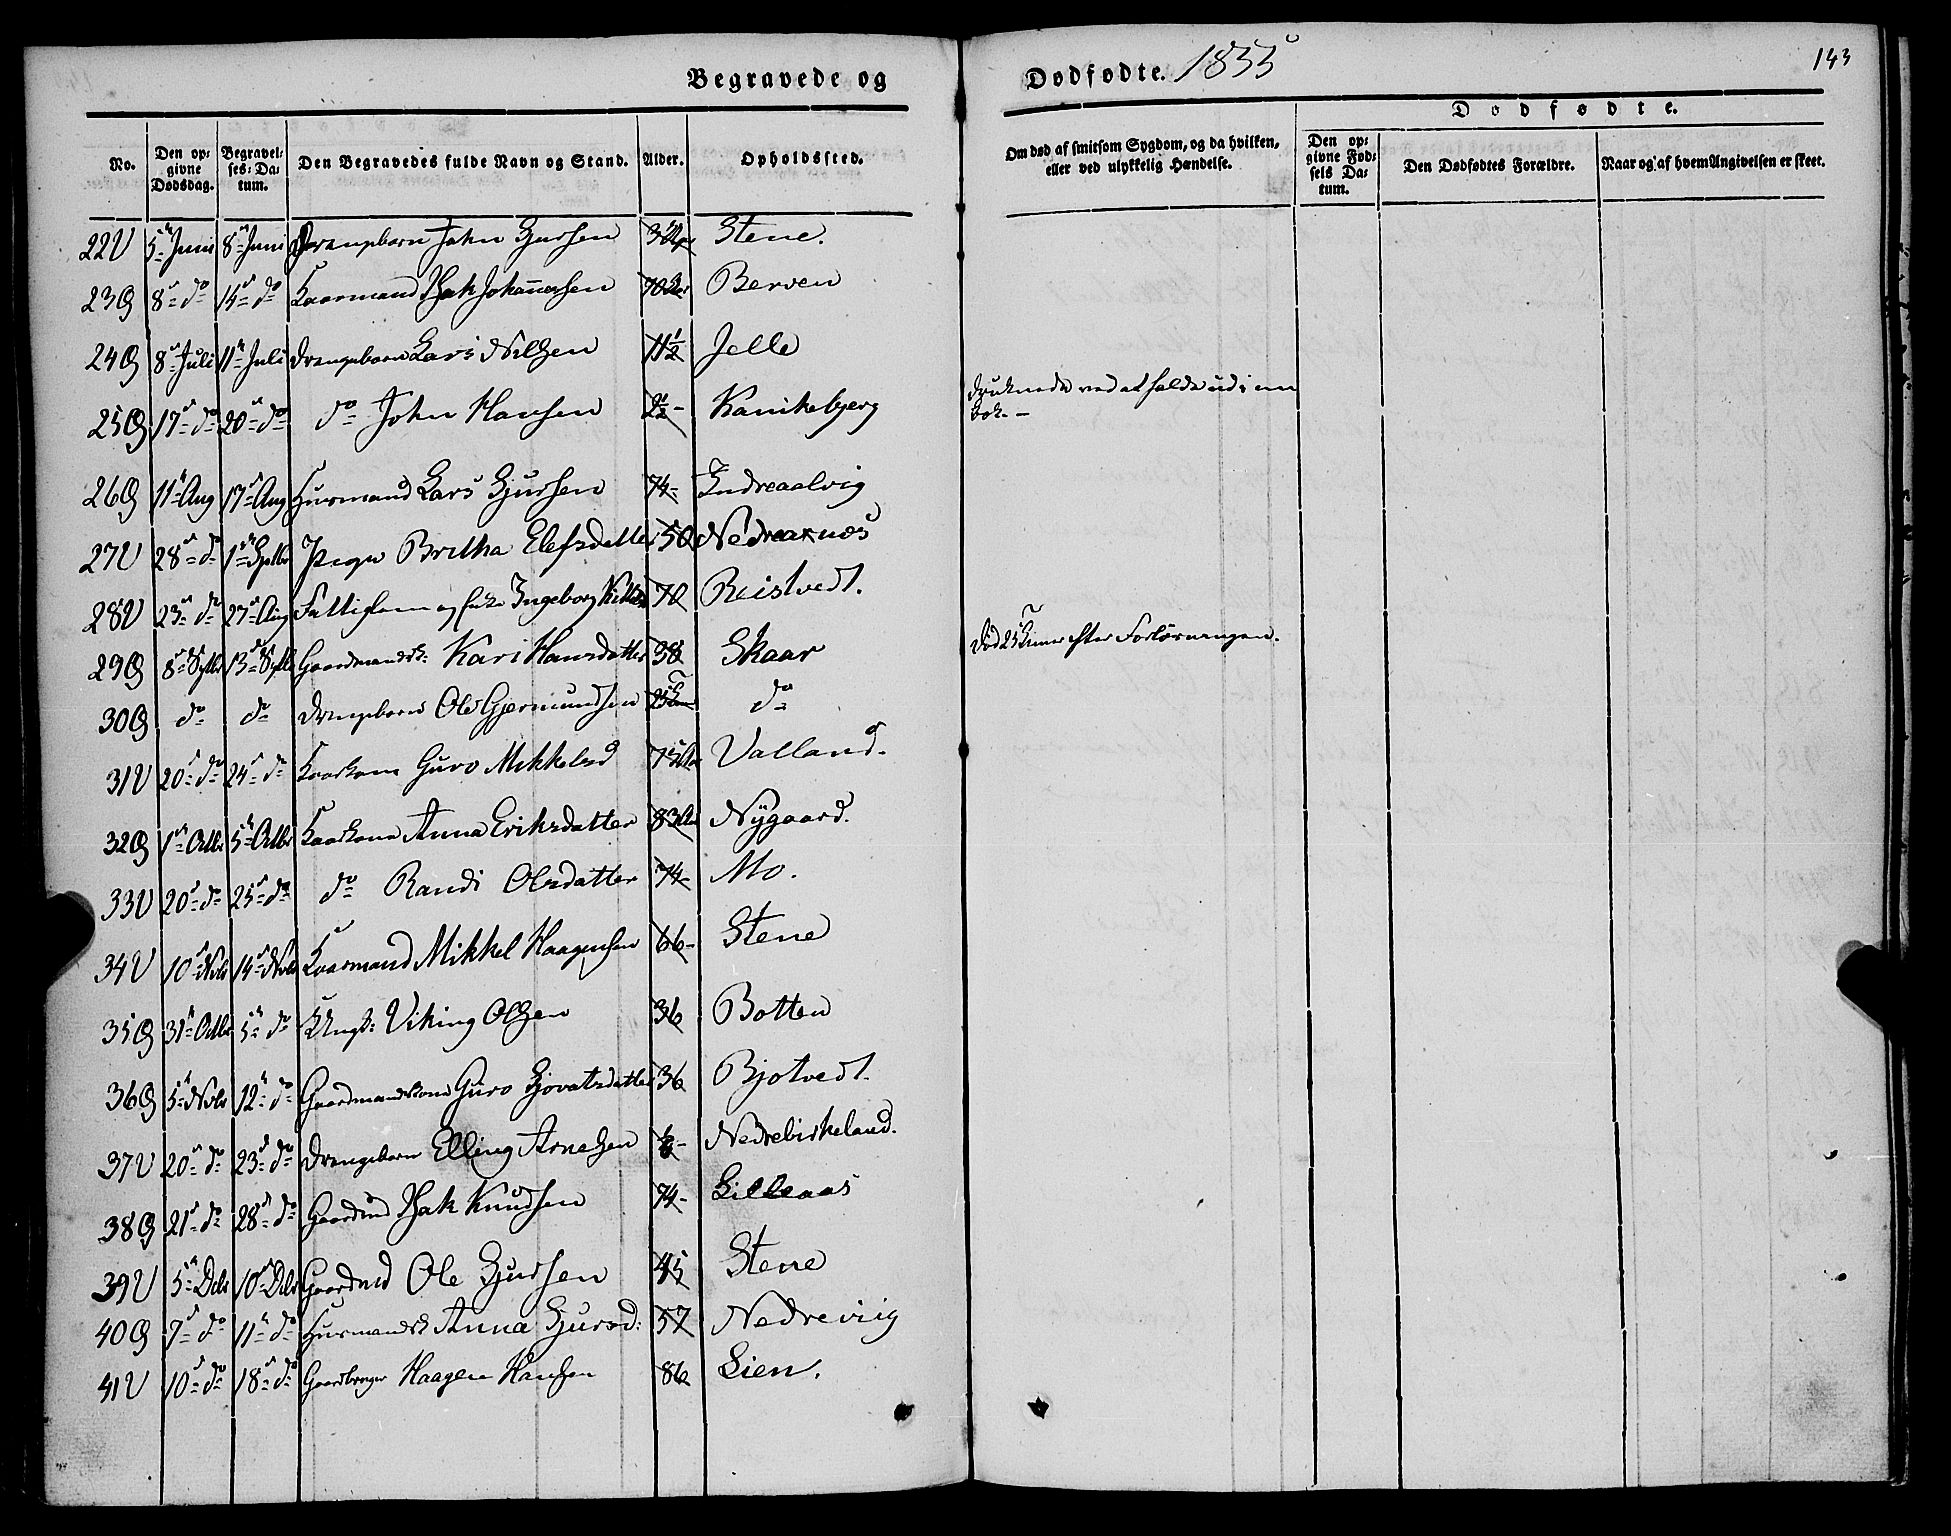 Begravede og
Dødfødte. 1833
143
No.
Den op-
givne
Dødsdag.
Begravel-
ses-Da-
tum.
Den Begravedes fulde Navn og Stand.
Alder.
Opholdssted.
Om død af smitsom Sygdom, og da hvilken,
eller ved ulykkelig Hændelse.
Dødfødte.
Den op-
givne Fød-
sels Da-
tum.
Den Dødfødtes Forældre.
Naar og af hvem Angivelsen er skeet.
22 U 5te Juni 8de Juni Drengebarn John Sjursen Stene.
23 G 8de do 14de do Kaarmand Isak Johannesen 70 Berven
24 G 8de Juli 11te Juli Drengebarn Lars Nilsen 11½ Jelle
25 G 17de do 20de do do John Hansen 2½ - Kanikebjerg druknede ved at falde ud i en
Bæk. -
26 G 11te Aug 17de Aug Huusmand Lars Sjursen 74 - Indreaalvig
27 U 28de do 1ste Septbr Pige Britha Elefsdatter 50 Nedreaxnæs
28 U 23de do 27de Aug Fattiglem Ingeborg 70 Reistvedt.
29 G 8de Septbr 13de Septbr Gaardmandsk: Kari Hansdatter 38 Skaar død 25 Timer efter Forløsningen.
30 G do do Drengebarn Ole Gjermundsen do
31 U 20de do 24de do Kaarkone Guro Mikkelsd Valland.
32 G 1ste Octbr 5te Octbr Kaarkone Anna Eriksdatter 83 Nygaard.
33 U 20de do 25de do do Randi Olsdatter 74 - Mo.
34 U 10de Nvbr 14de Nvbr Kaarmand Mikkel Haagensen 66 - Stene
35 G 31te Octbr 5te do Viking Olsen 36 Botten
36 G 5te Nvbr 12te do Gaardmandskone Guro Sjovatsdatter 36 Bjotvedt.
37 U 20de do 23de do Drengebarn Elling Arnesen Nedrebirkeland.
38 G 21de do 28de do Gaardmd Isak Knudsen 74 - Lilleaas
39 U 5te Dcbr 10de Dcbr Gaardmd Ole Sjursen 45 Stene
40 G 7de do 11te do Huusmandsk Anna Sjursd: 57 Nedreviig
41 U 10de do 18de do Gaardbruger Haagen Hansen 86 Lien.